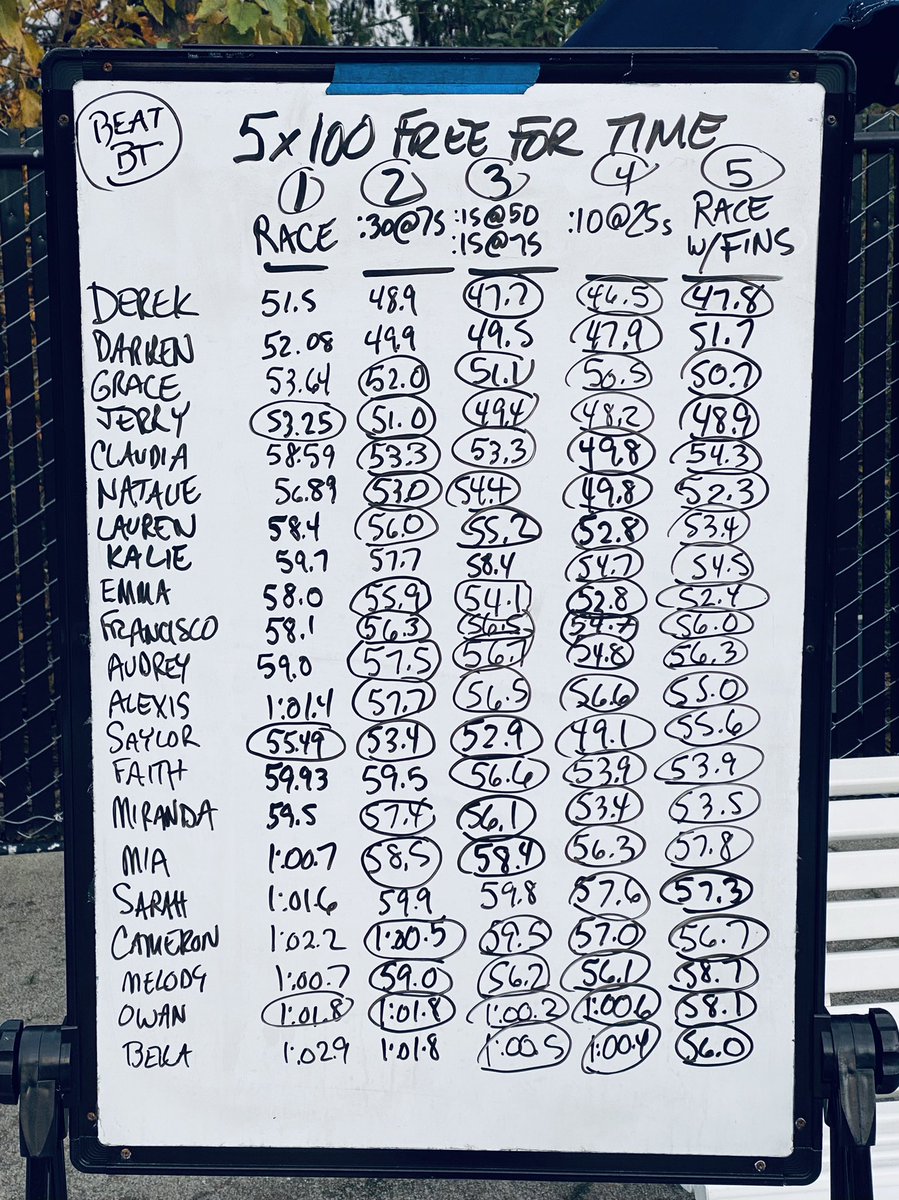 BEAT
BT
5x100 FREE FOR TIME
1 2 3 4 5
RACE :30@75 :15@50 :15@75 :10@25s RACE W/FINS
DEREK 51.5 48.9 47.7 46.5 47.8
DARREN 52.08 49.9 49.5 47.9 51.7
GRACE 53.64 52.0 51.1 50.5 50.7
JERRY 53.25 51.0 49.4 48.2 48.9
CLAUDIA 58.59 53.3 53.3 49.8 54.3
NATALIE 56.89 53.0 54.4 49.8 52.3
LAUREN 58.4 56.0 55.2 52.8 53.4
KALIE 59.7 57.7 58.4 54.7 54.5
EMMA 58.0 55.9 54.1 52.8 52.4
FRANCISCO 58.1 56.3 56.5 54.7 56.0
AUDREY 59.0 57.5 56.7 54.8 56.3
ALEXIS 1:01.4 57.7 56.5 56.6 55.0
SAYLOR 55.49 53.4 52.9 49.1 55.6
FAITH 59.93 59.5 56.6 53.9 53.9
MIRANDA 59.5 57.4 56.1 53.4 53.5
MIA 1:00.7 58.5 58.4 56.3 57.8
SARAH 1:01.6 59.9 59.8 57.6 57.3
CAMERON 1:02.2 1:00.5 59.5 57.0 56.7
MELODY 1:00.7 59.0 56.2 56.1 58.7
OWAN 1:01.8 1:01.8 1:00.2 1:00.6 58.1
1:02.9 1:01.8 1:00.5 1:00.4 56.0